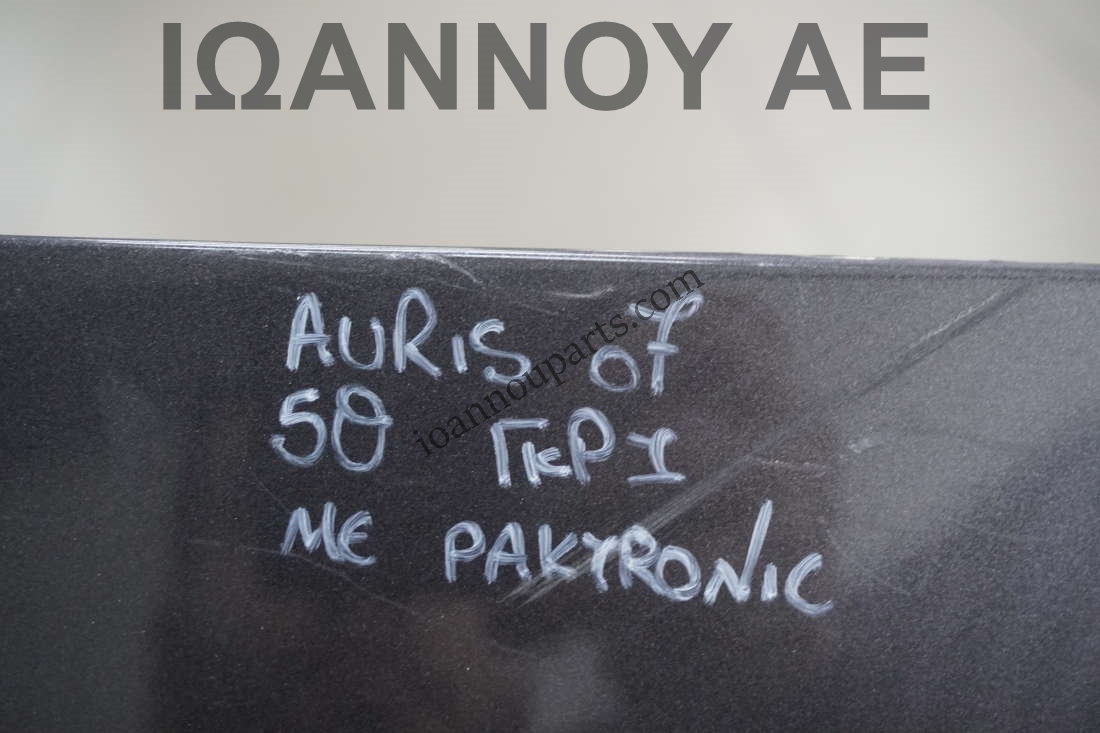 ΙΩΑΝΝΟΥ ΑΕ
AURIS 07
5Θ ΓΚΡΙ
ΜΕ PAKTRONIC
ioannouparts.com